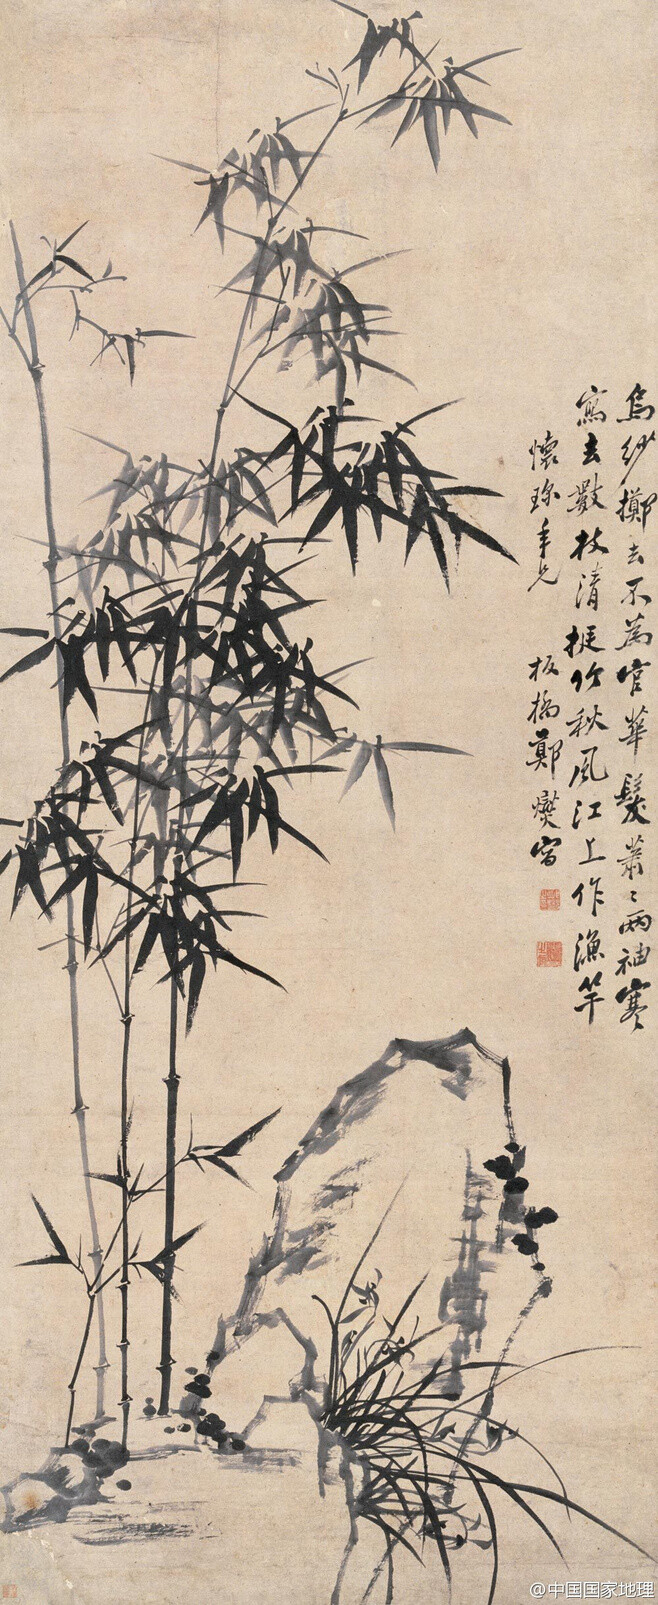 烏紗擲去不為官華髮蕭〻兩袖寒
寫去數枝清挺竹秋風江上作漁竿
懷珍年兄 板橋鄭燮寫
@中国国家地理